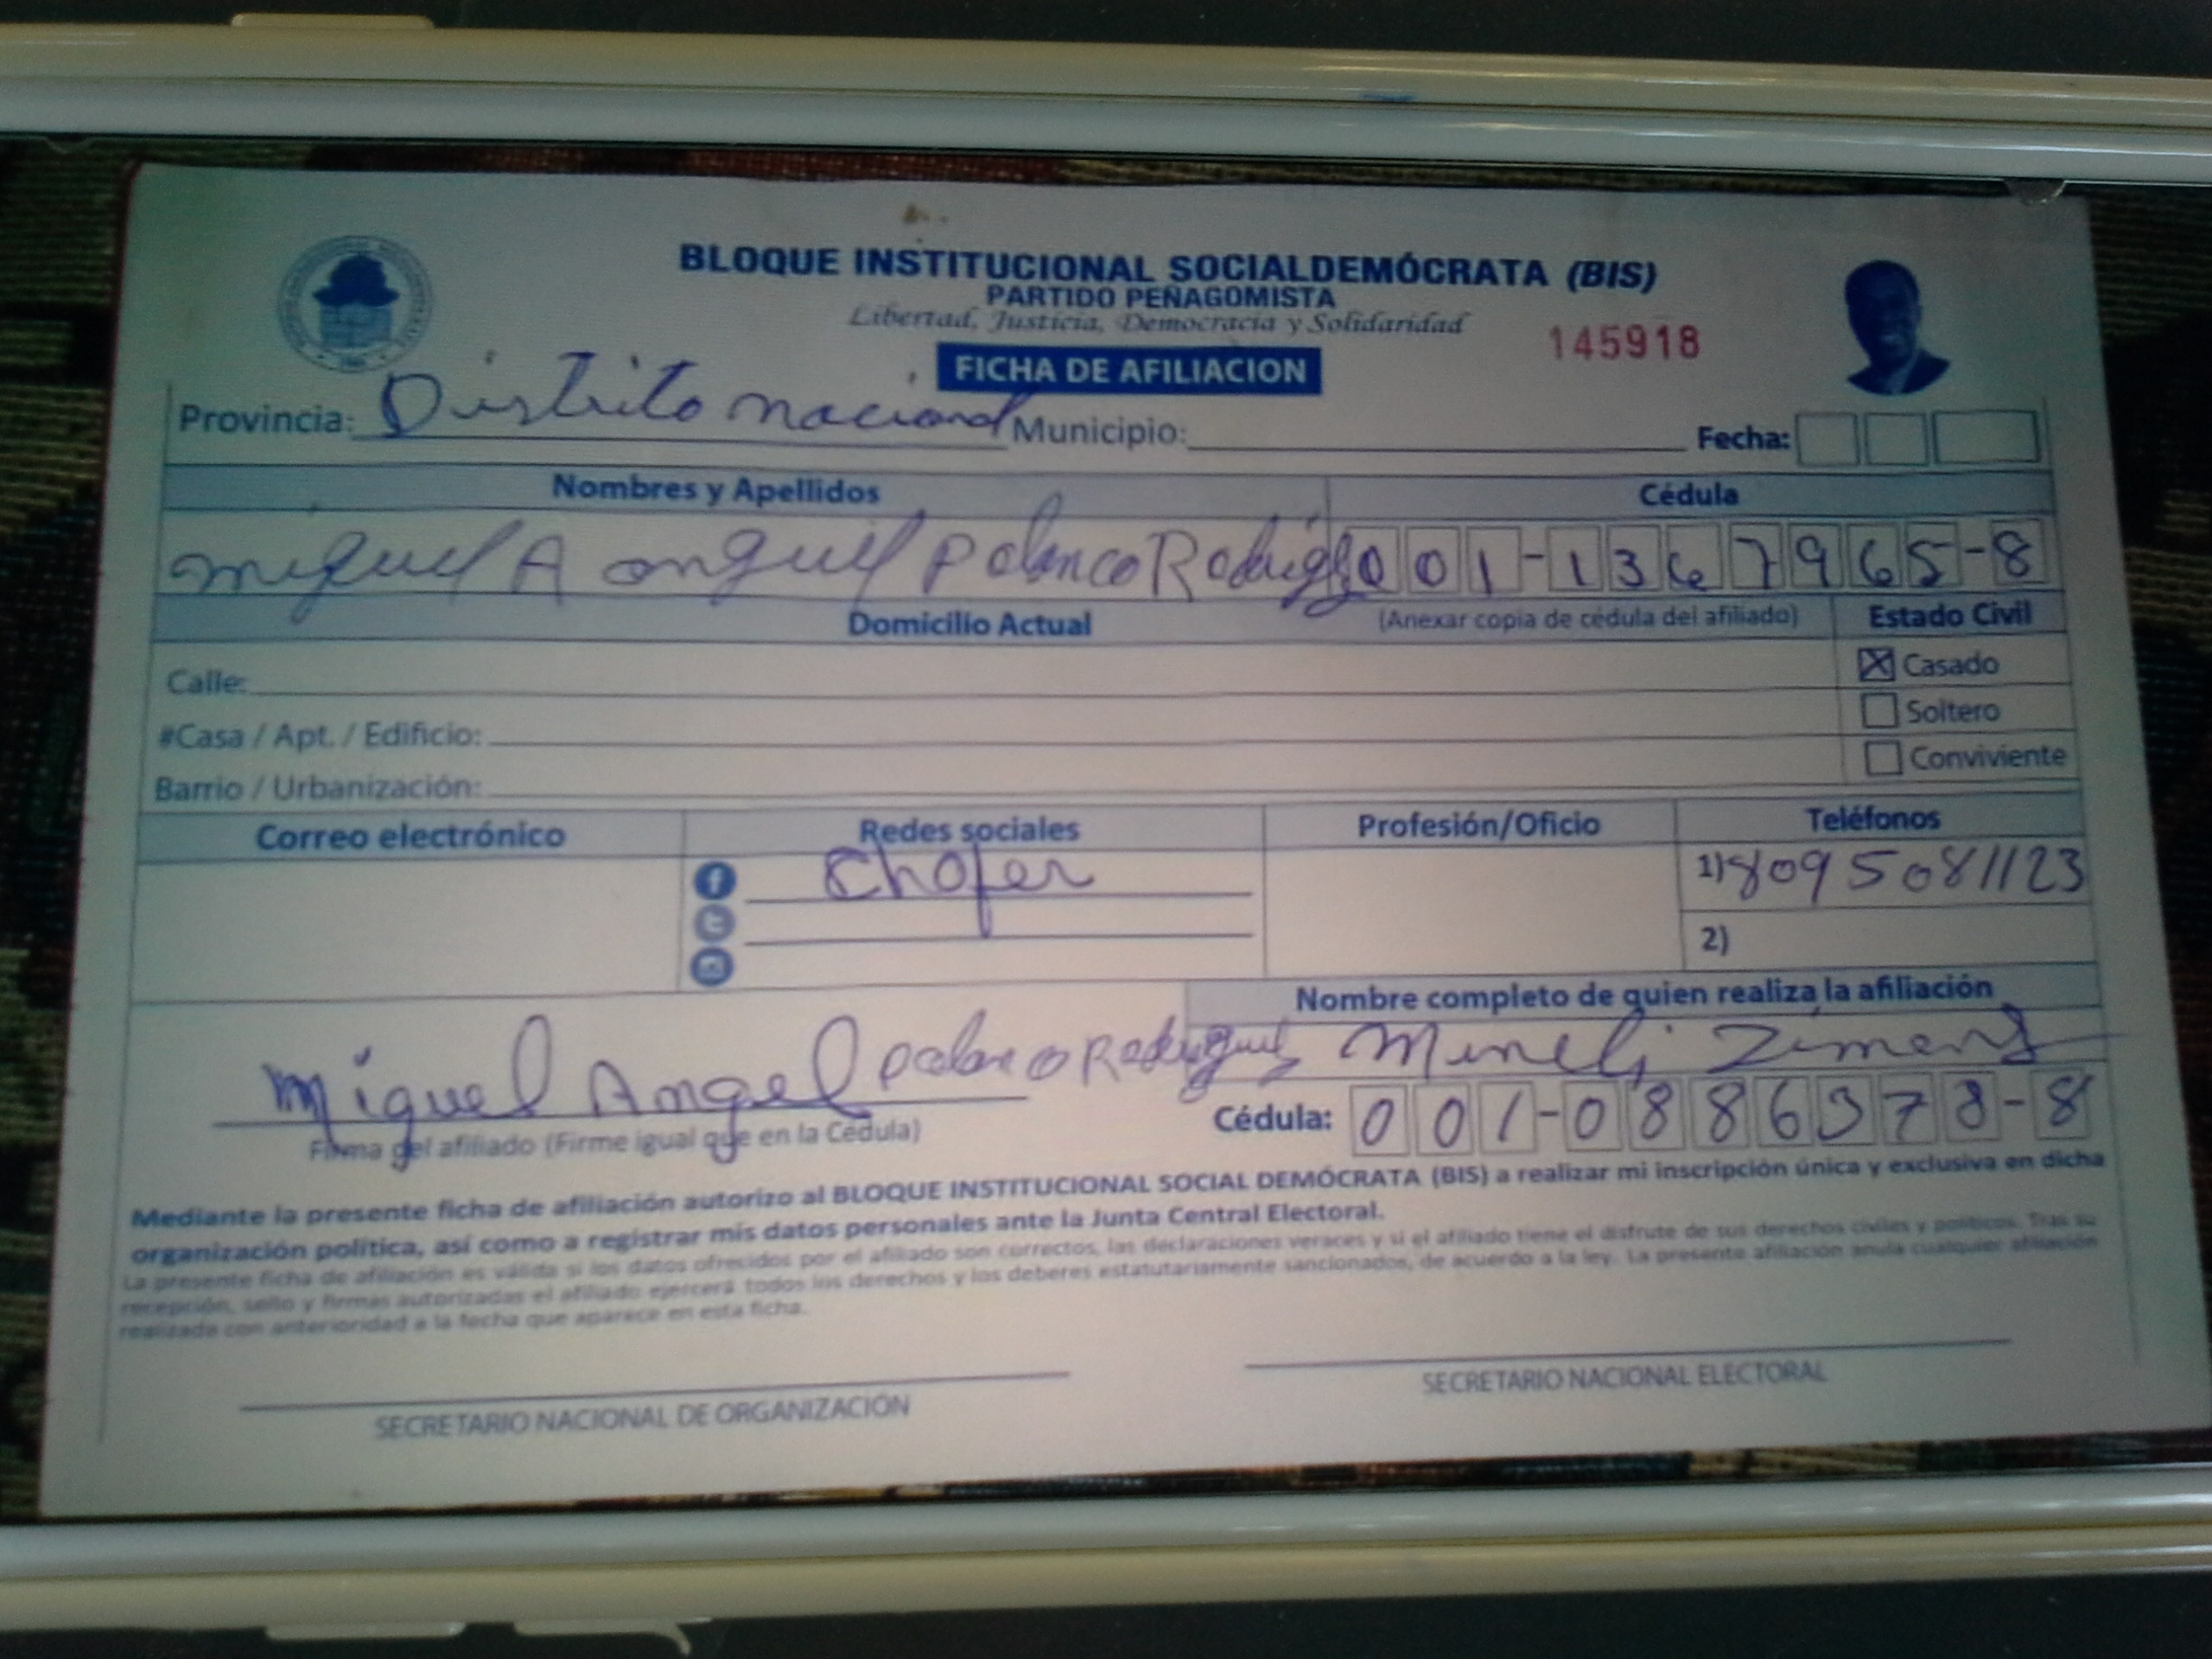 BLOQUE INSTITUCIONAL SOCIALDEMÓCRATA (BIS)
PARTIDO PEÑAGOMISTA
Libertad, Justicia, Democracia y Solidaridad
145918
FICHA DE AFILIACION
Provincia: Distrito nacional Municipio: Fecha:
Nombres y Apellidos Cédula
miguel A anguel Polanco Rodrigez 001-1367965-8
Domicilio Actual (Anexar copia de cédula del afiliado) Estado Civil
Calle: Casado
Soltero
#Casa / Apt. / Edificio:
Conviviente
Barrio / Urbanización:
Correo electrónico Redes sociales Profesión/Oficio Teléfonos
Chofer 1) 8095081123
2)
Nombre completo de quien realiza la afiliación
Miguel Angel Polanco Rodriguez
Firma del afiliado (Firme igual que en la Cédula) Cédula: 001-0886378-8
Mediante la presente ficha de afiliación autorizo al BLOQUE INSTITUCIONAL SOCIAL DEMÓCRATA (BIS) a realizar mi inscripción única y exclusiva en dicha
organización política, así como a registrar mis datos personales ante la Junta Central Electoral.
La presente ficha de afiliación es válida si los datos ofrecidos por el afiliado son correctos, las declaraciones veraces y si el afiliado tiene el disfrute de sus derechos civiles y políticos. Tras su
recepción, sello y firmas autorizadas el afiliado ejercerá todos los derechos y los deberes estatutariamente sancionados, de acuerdo a la ley. La presente afiliación anula cualquier afiliación
realizada con anterioridad a la fecha que aparece en esta ficha.
SECRETARIO NACIONAL DE ORGANIZACIÓN SECRETARIO NACIONAL ELECTORAL